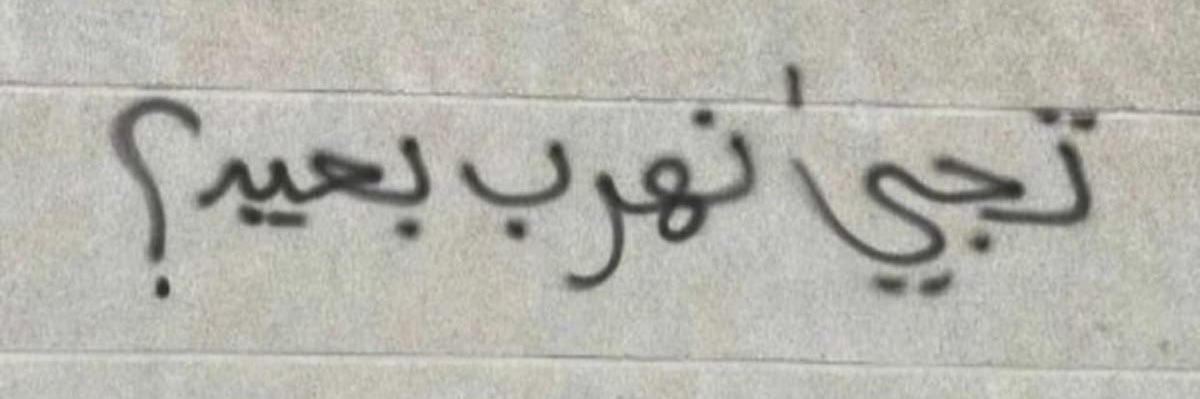 تجي نهرب بعيد؟